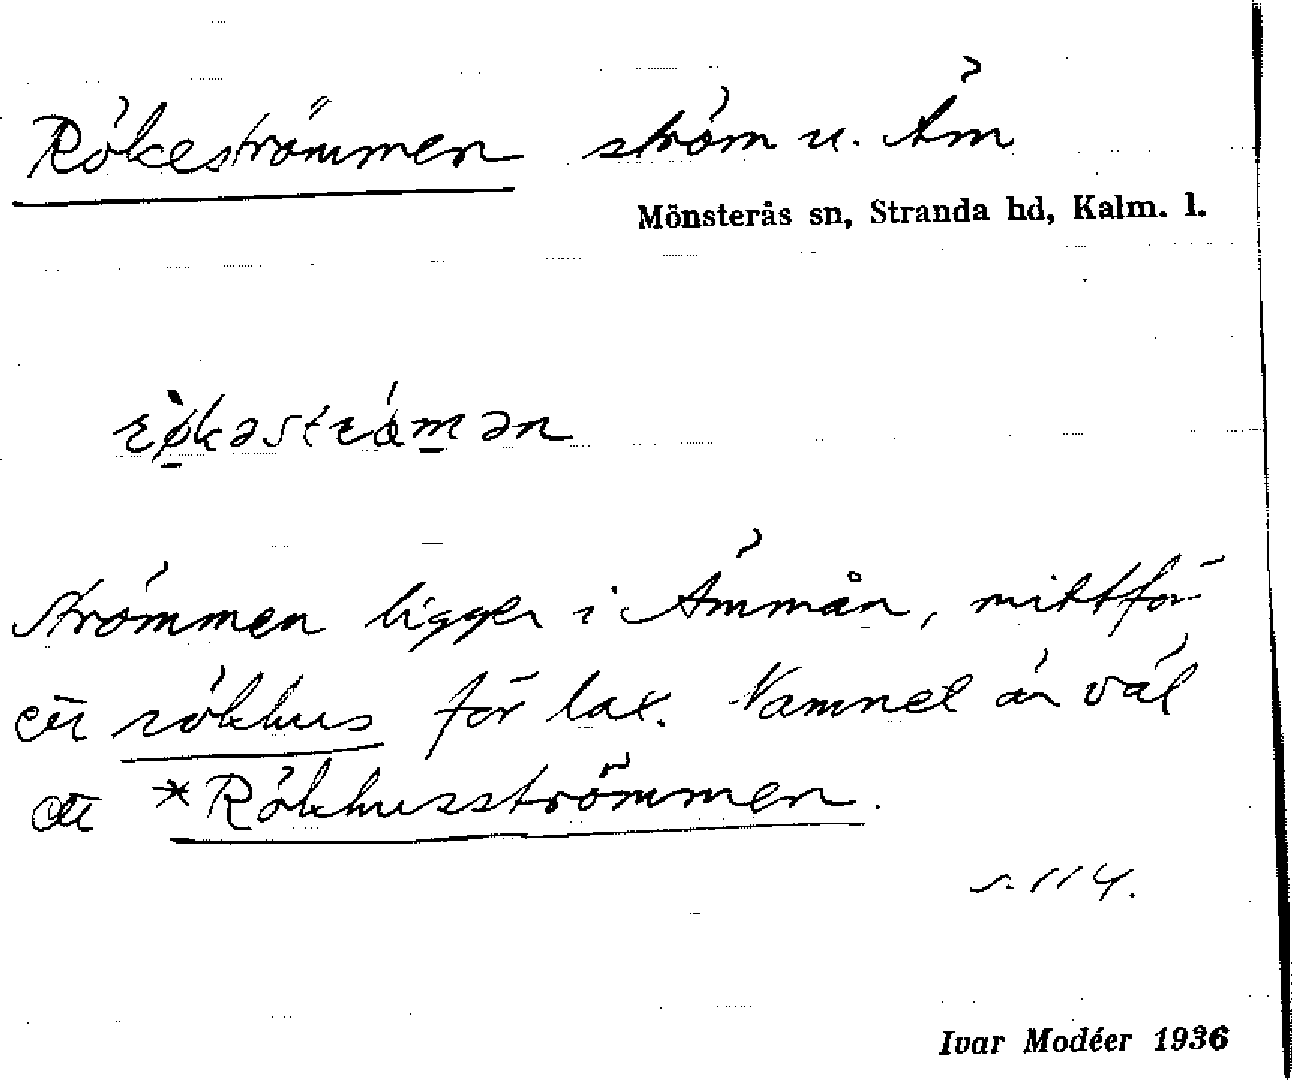 Rökeströmmen ström u. Åm
Mönsterås sn, Stranda hd, Kalm. l.
Strömmen ligger i Åmmån, mittför
ett rökhus för lax. Namnet är väl
ett *Rökhusströmmen.
s. 114.
Ivar Modéer 1936